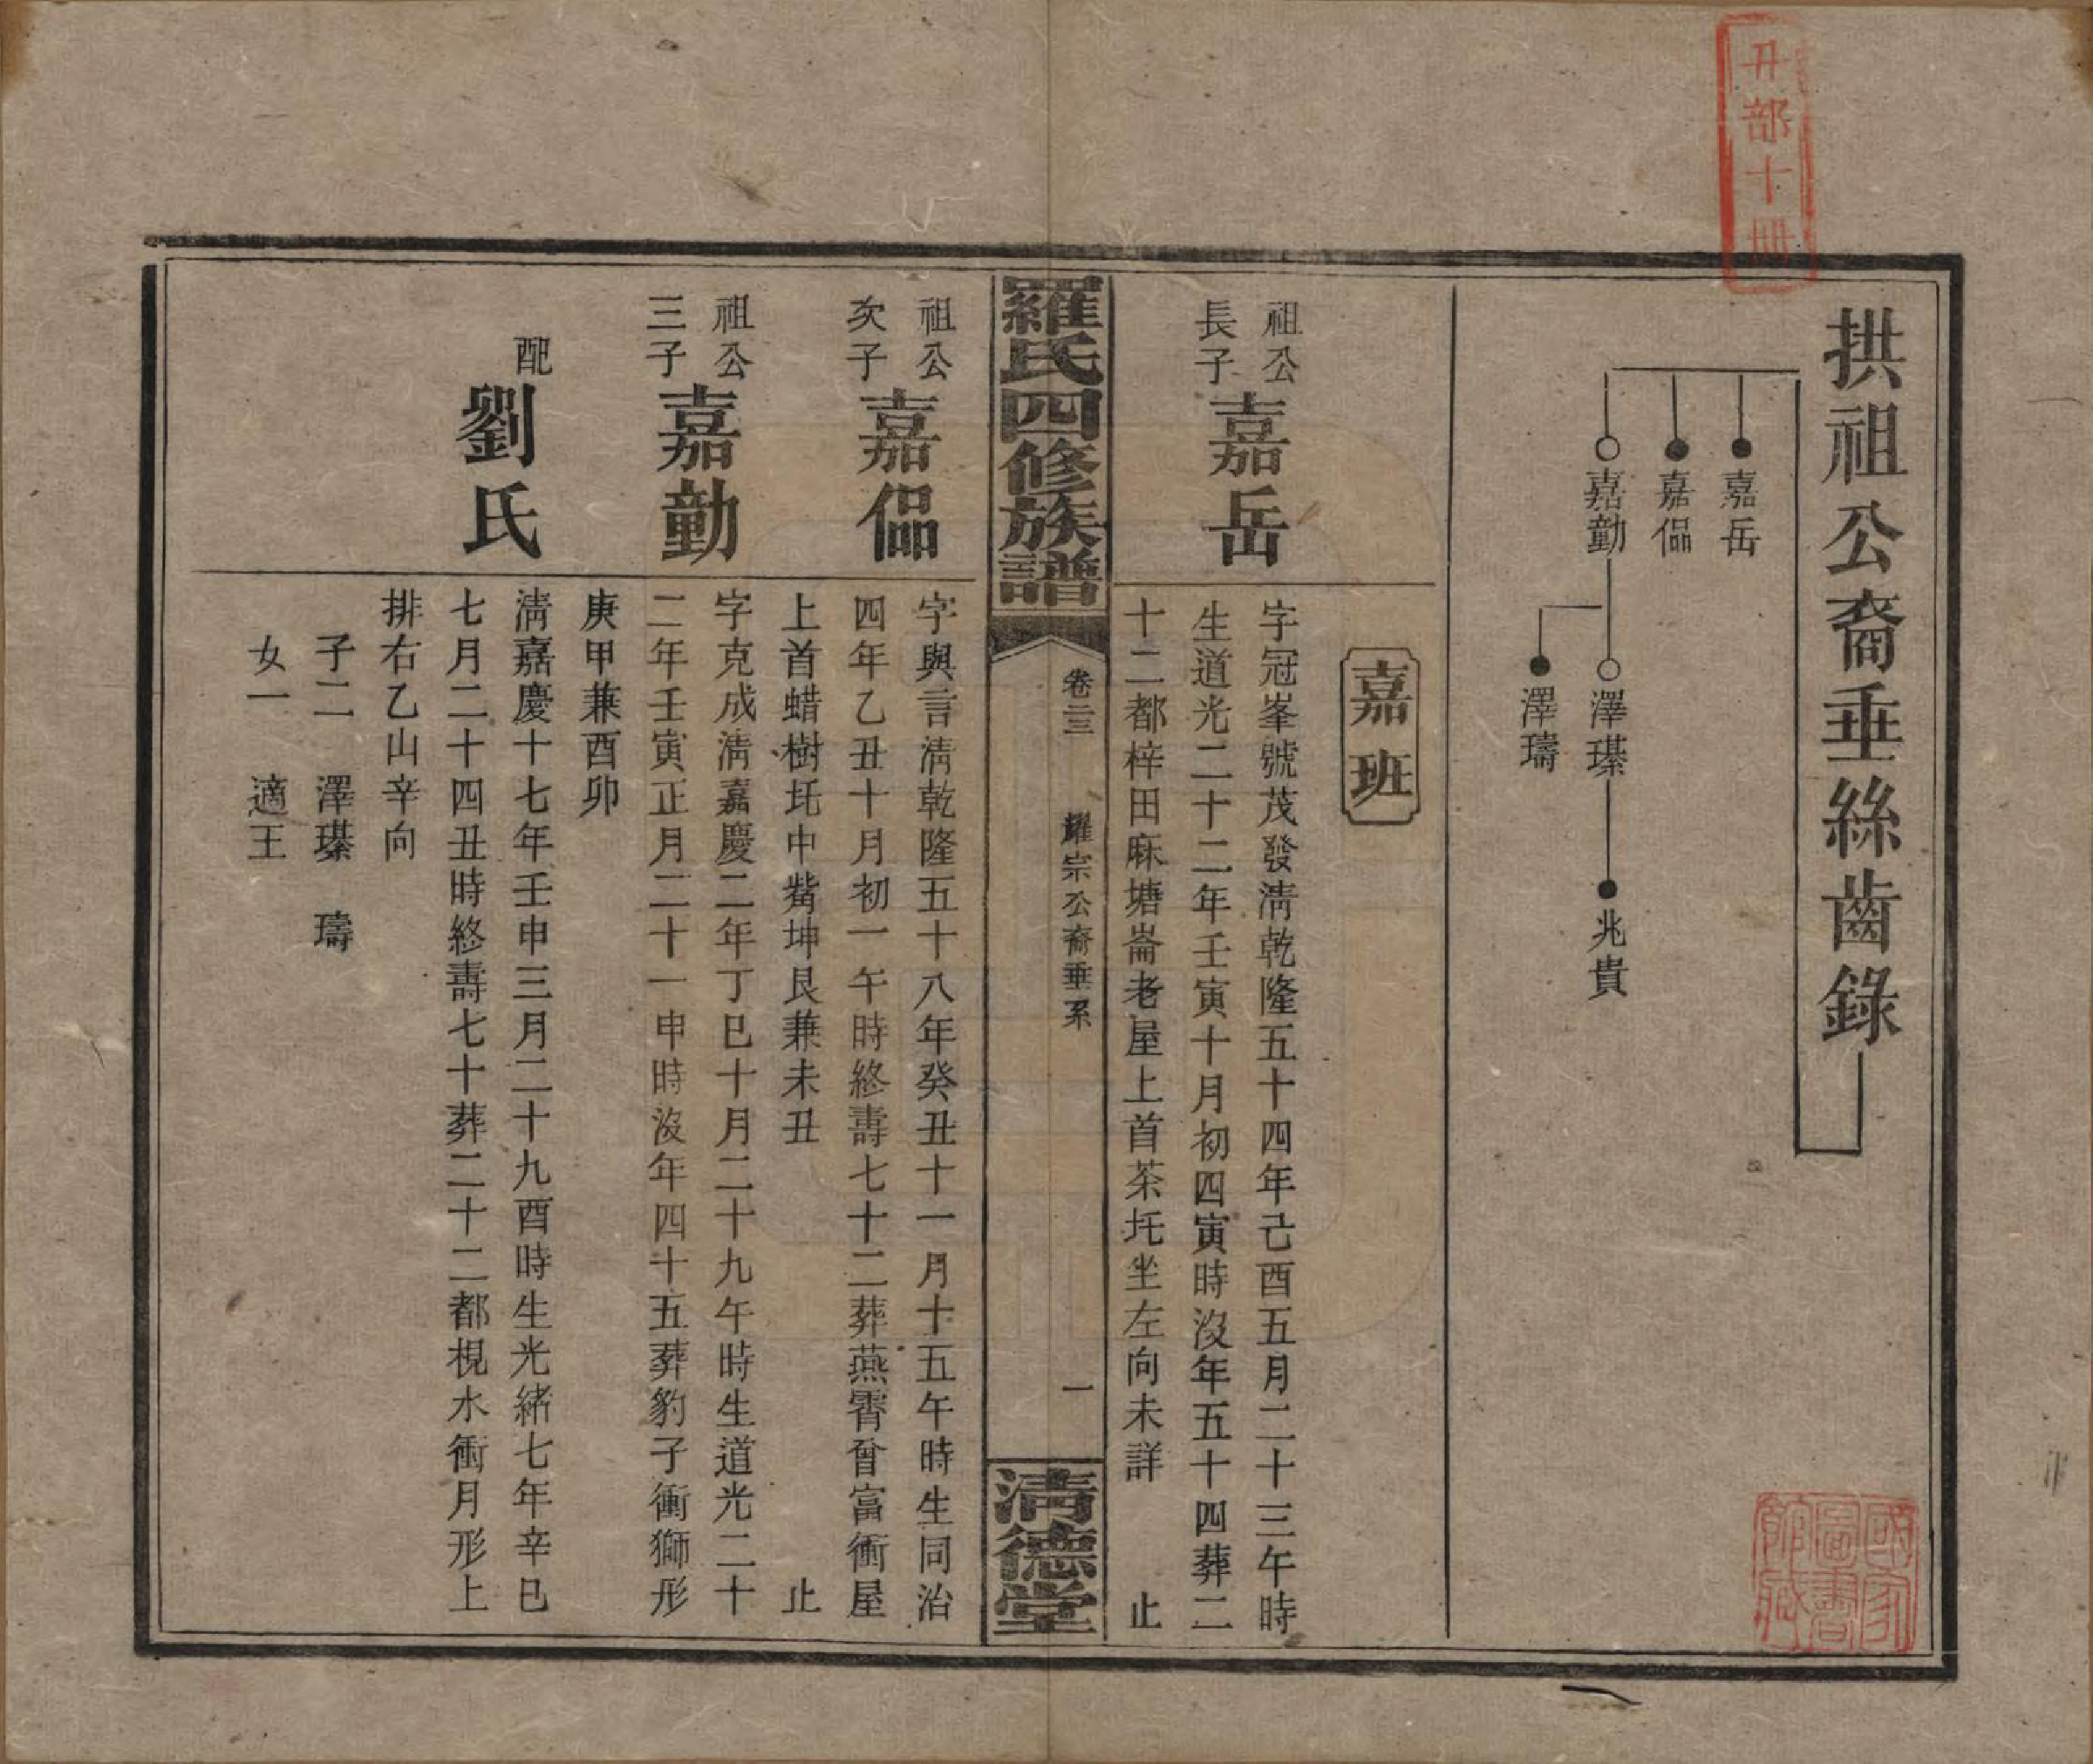 丑部十冊
拱祖公裔垂絲齒錄
嘉岳
嘉偘
嘉勤
澤瑧
澤璹
兆貴
國家圖書館藏
嘉班
祖公長子
嘉岳
字冠峯號茂發淸乾隆五十四年己酉五月二十三午時
生道光二十二年壬寅十月初四寅時沒年五十四葬二
十二都梓田麻塘崙老屋上首茶圫坐左向未詳 止
羅氏四修族譜
卷二三 耀宗公裔垂系 一
淸德堂
祖公次子
嘉偘
字與言淸乾隆五十八年癸丑十一月十五午時生同治
四年乙丑十月初一午時終壽七十二葬燕霄曾富衝屋
上首蜡樹圫中觜坤艮兼未丑 止
祖公三子
嘉勤
字克成淸嘉慶二年丁巳十月二十九午時生道光二十
二年壬寅正月二十一申時沒年四十五葬豹子衝獅形
庚甲兼酉卯
配
劉氏
淸嘉慶十七年壬申三月二十九酉時生光緒七年辛巳
七月二十四丑時終壽七十葬二十二都梘水衝月形上
排右乙山辛向
子二 澤瑧 璹
女一 適王